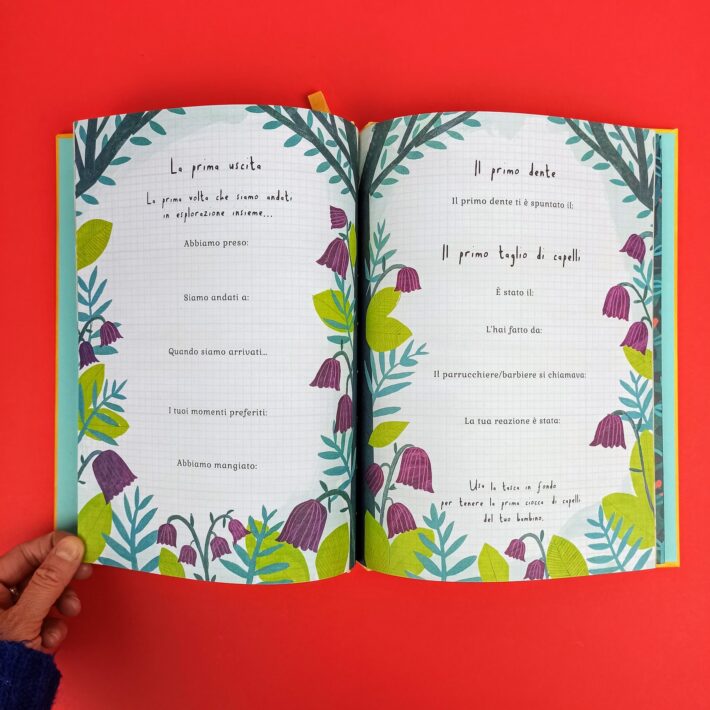 La prima uscita
La prima volta che siamo andati
in esplorazione insieme...
Abbiamo preso:
Siamo andati a:
Quando siamo arrivati...
I tuoi momenti preferiti:
Abbiamo mangiato:
Il primo dente
Il primo dente ti è spuntato il:
Il primo taglio di capelli
È stato il:
L'hai fatto da:
Il parrucchiere/barbiere si chiamava:
La tua reazione è stata:
Usa la tasca in fondo
per tenere la prima ciocca di capelli
del tuo bambino.